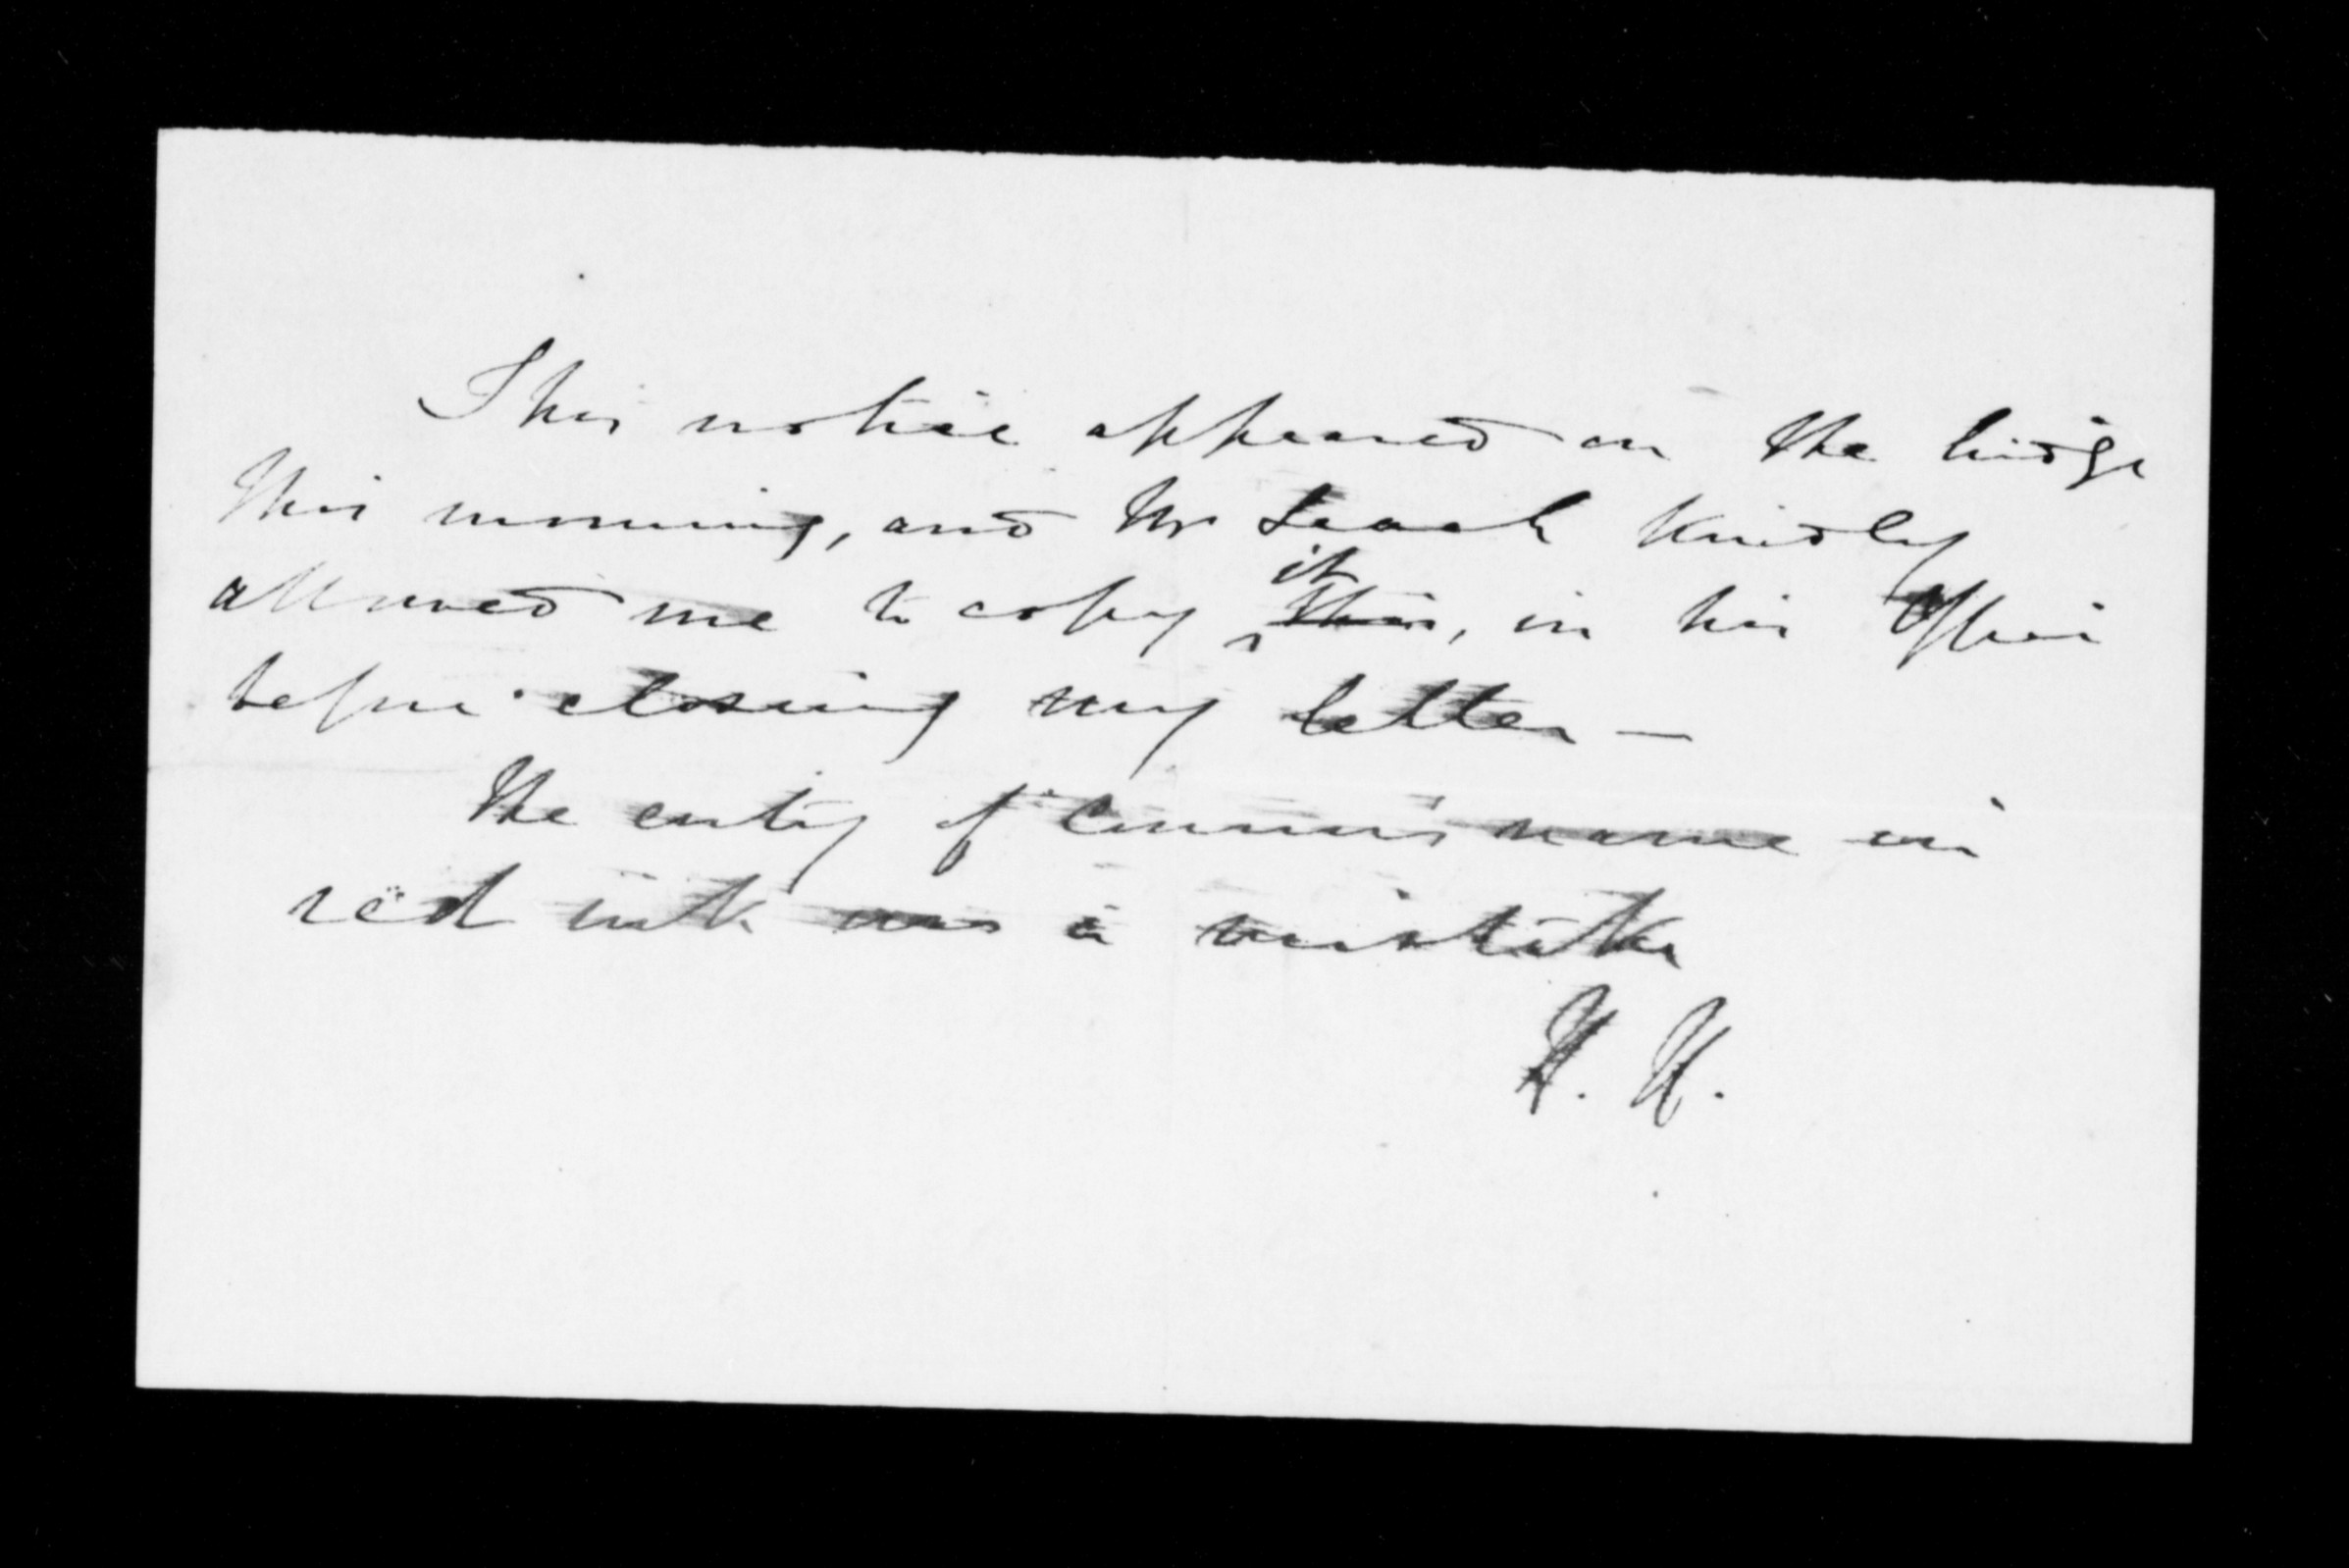 This notice appeared on the bridge
this morning, and Mr Leach kindly
allowed me to copy it this, in his office
before closing my letter —
The entry of name in
red ink was a mistake
H. H.